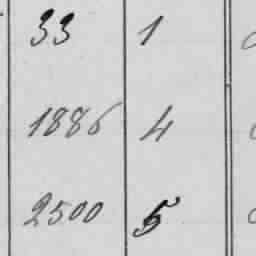 33 1
1886 4
2500 5